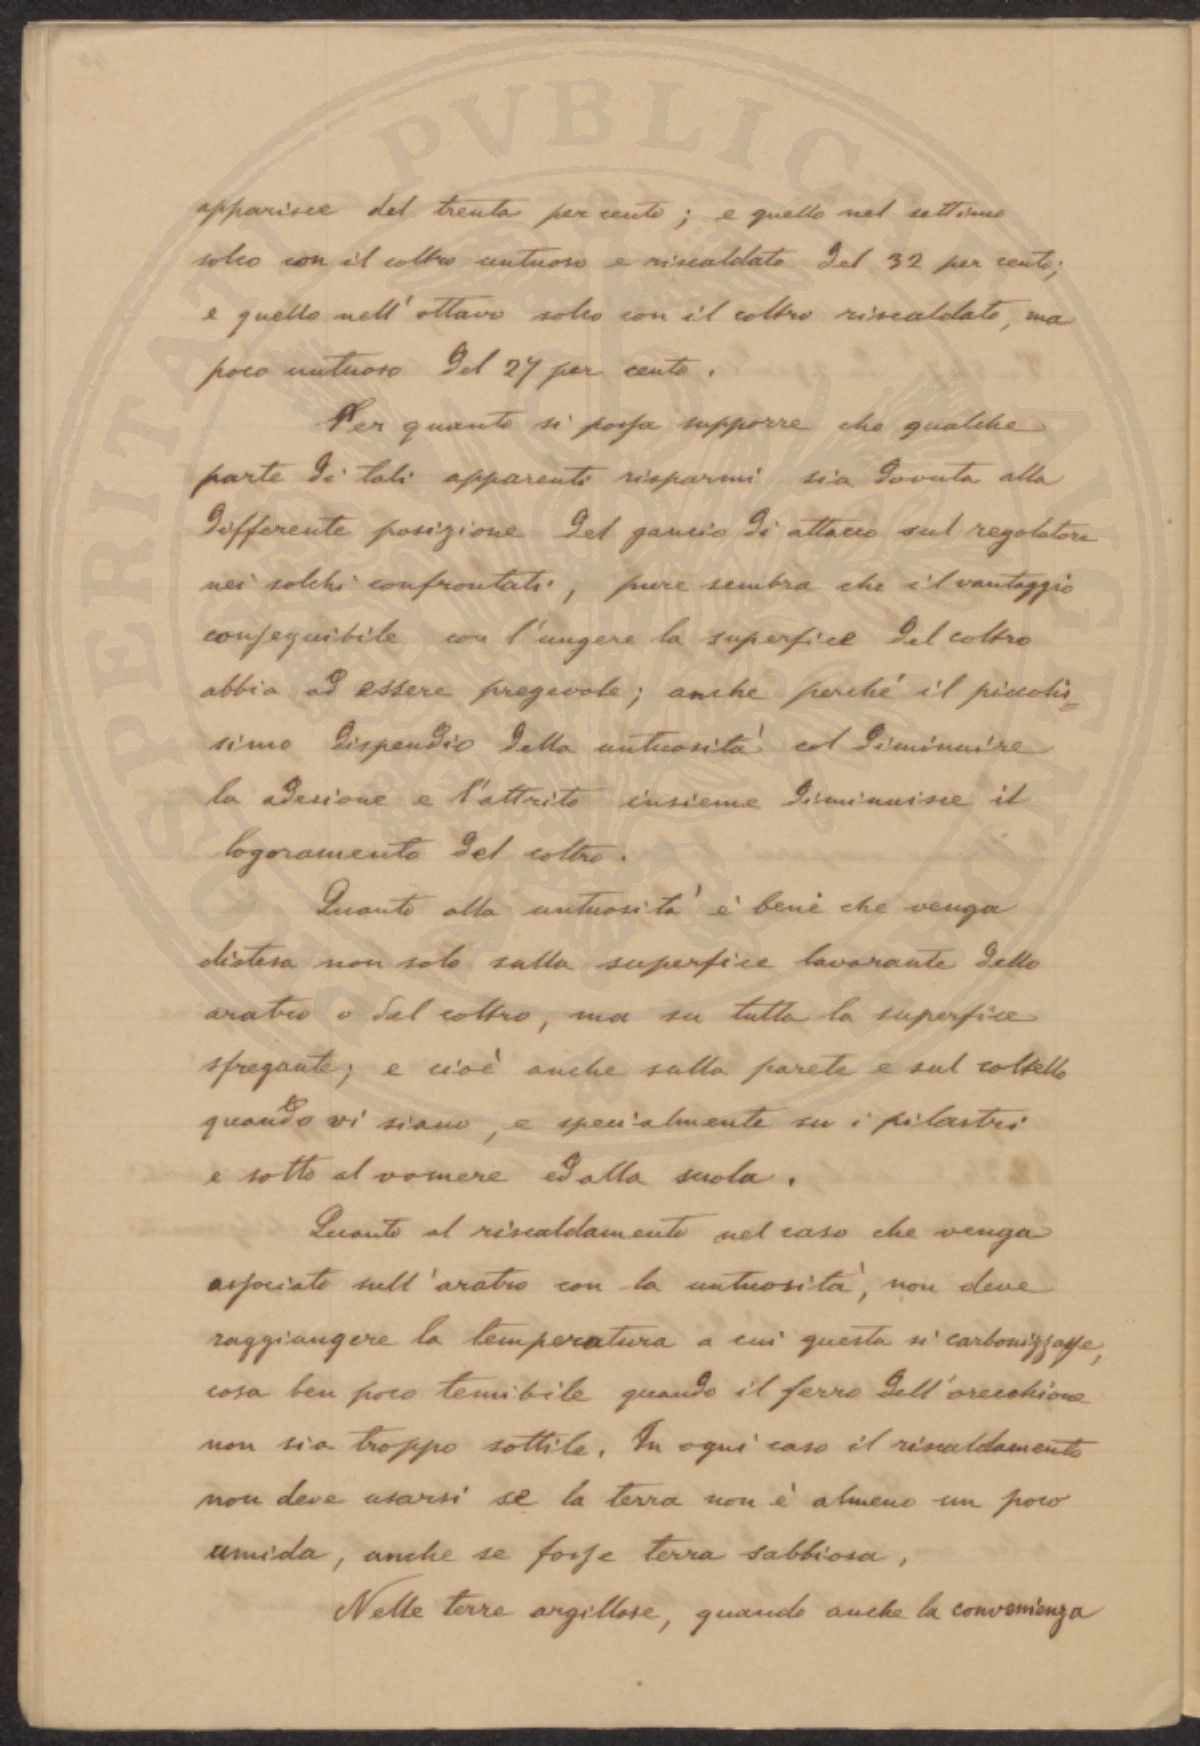 apparisce del trenta per cento; e quello nel settimo
solco con il coltro untuoso e riscaldato del 32 per cento;
e quello nell'ottavo solco con il coltro riscaldato, ma
poco untuoso del 27 per cento.
Per quanto si possa supporre che qualche
parte di tali apparenti risparmi sia dovuta alla
differente posizione del gancio di attacco sul regolatore
nei solchi confrontati, pure sembra che il vantaggio
conseguibile con l'ungere la superfice del coltro
abbia ad essere pregevole; anche perché il piccolis=
simo dispendio della untuosità col diminuire
la adesione e l'attrito insieme diminuisce il
logoramento del coltro.
Quanto alla untuosità è bene che venga
distesa non solo sulla superfice lavorante dello
aratro o del coltro, ma su tutta la superfice
sfregante; e cioè anche sulla parete e sul coltello
quando vi siano, e specialmente su i pilastri
e sotto al vomere ed alla suola.
Quanto al riscaldamento nel caso che venga
associato sull'aratro con la untuosità, non deve
raggiungere la temperatura a cui questa si carbonizzasse,
cosa ben poco temibile quando il ferro dell'orecchione
non sia troppo sottile. In ogni caso il riscaldamento
non deve usarsi se la terra non è almeno un poco
umida, anche se fosse terra sabbiosa.
Nelle terre argillose, quando anche la convenienza